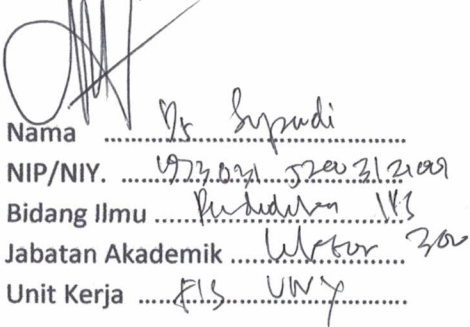 Nama ........ Dr Supardi
NIP/NIY. ........ 197303152003121001
Bidang Ilmu ........ Pendidikan IPS
Jabatan Akademik ........ Lektor 300
Unit Kerja ........ FIS UNY